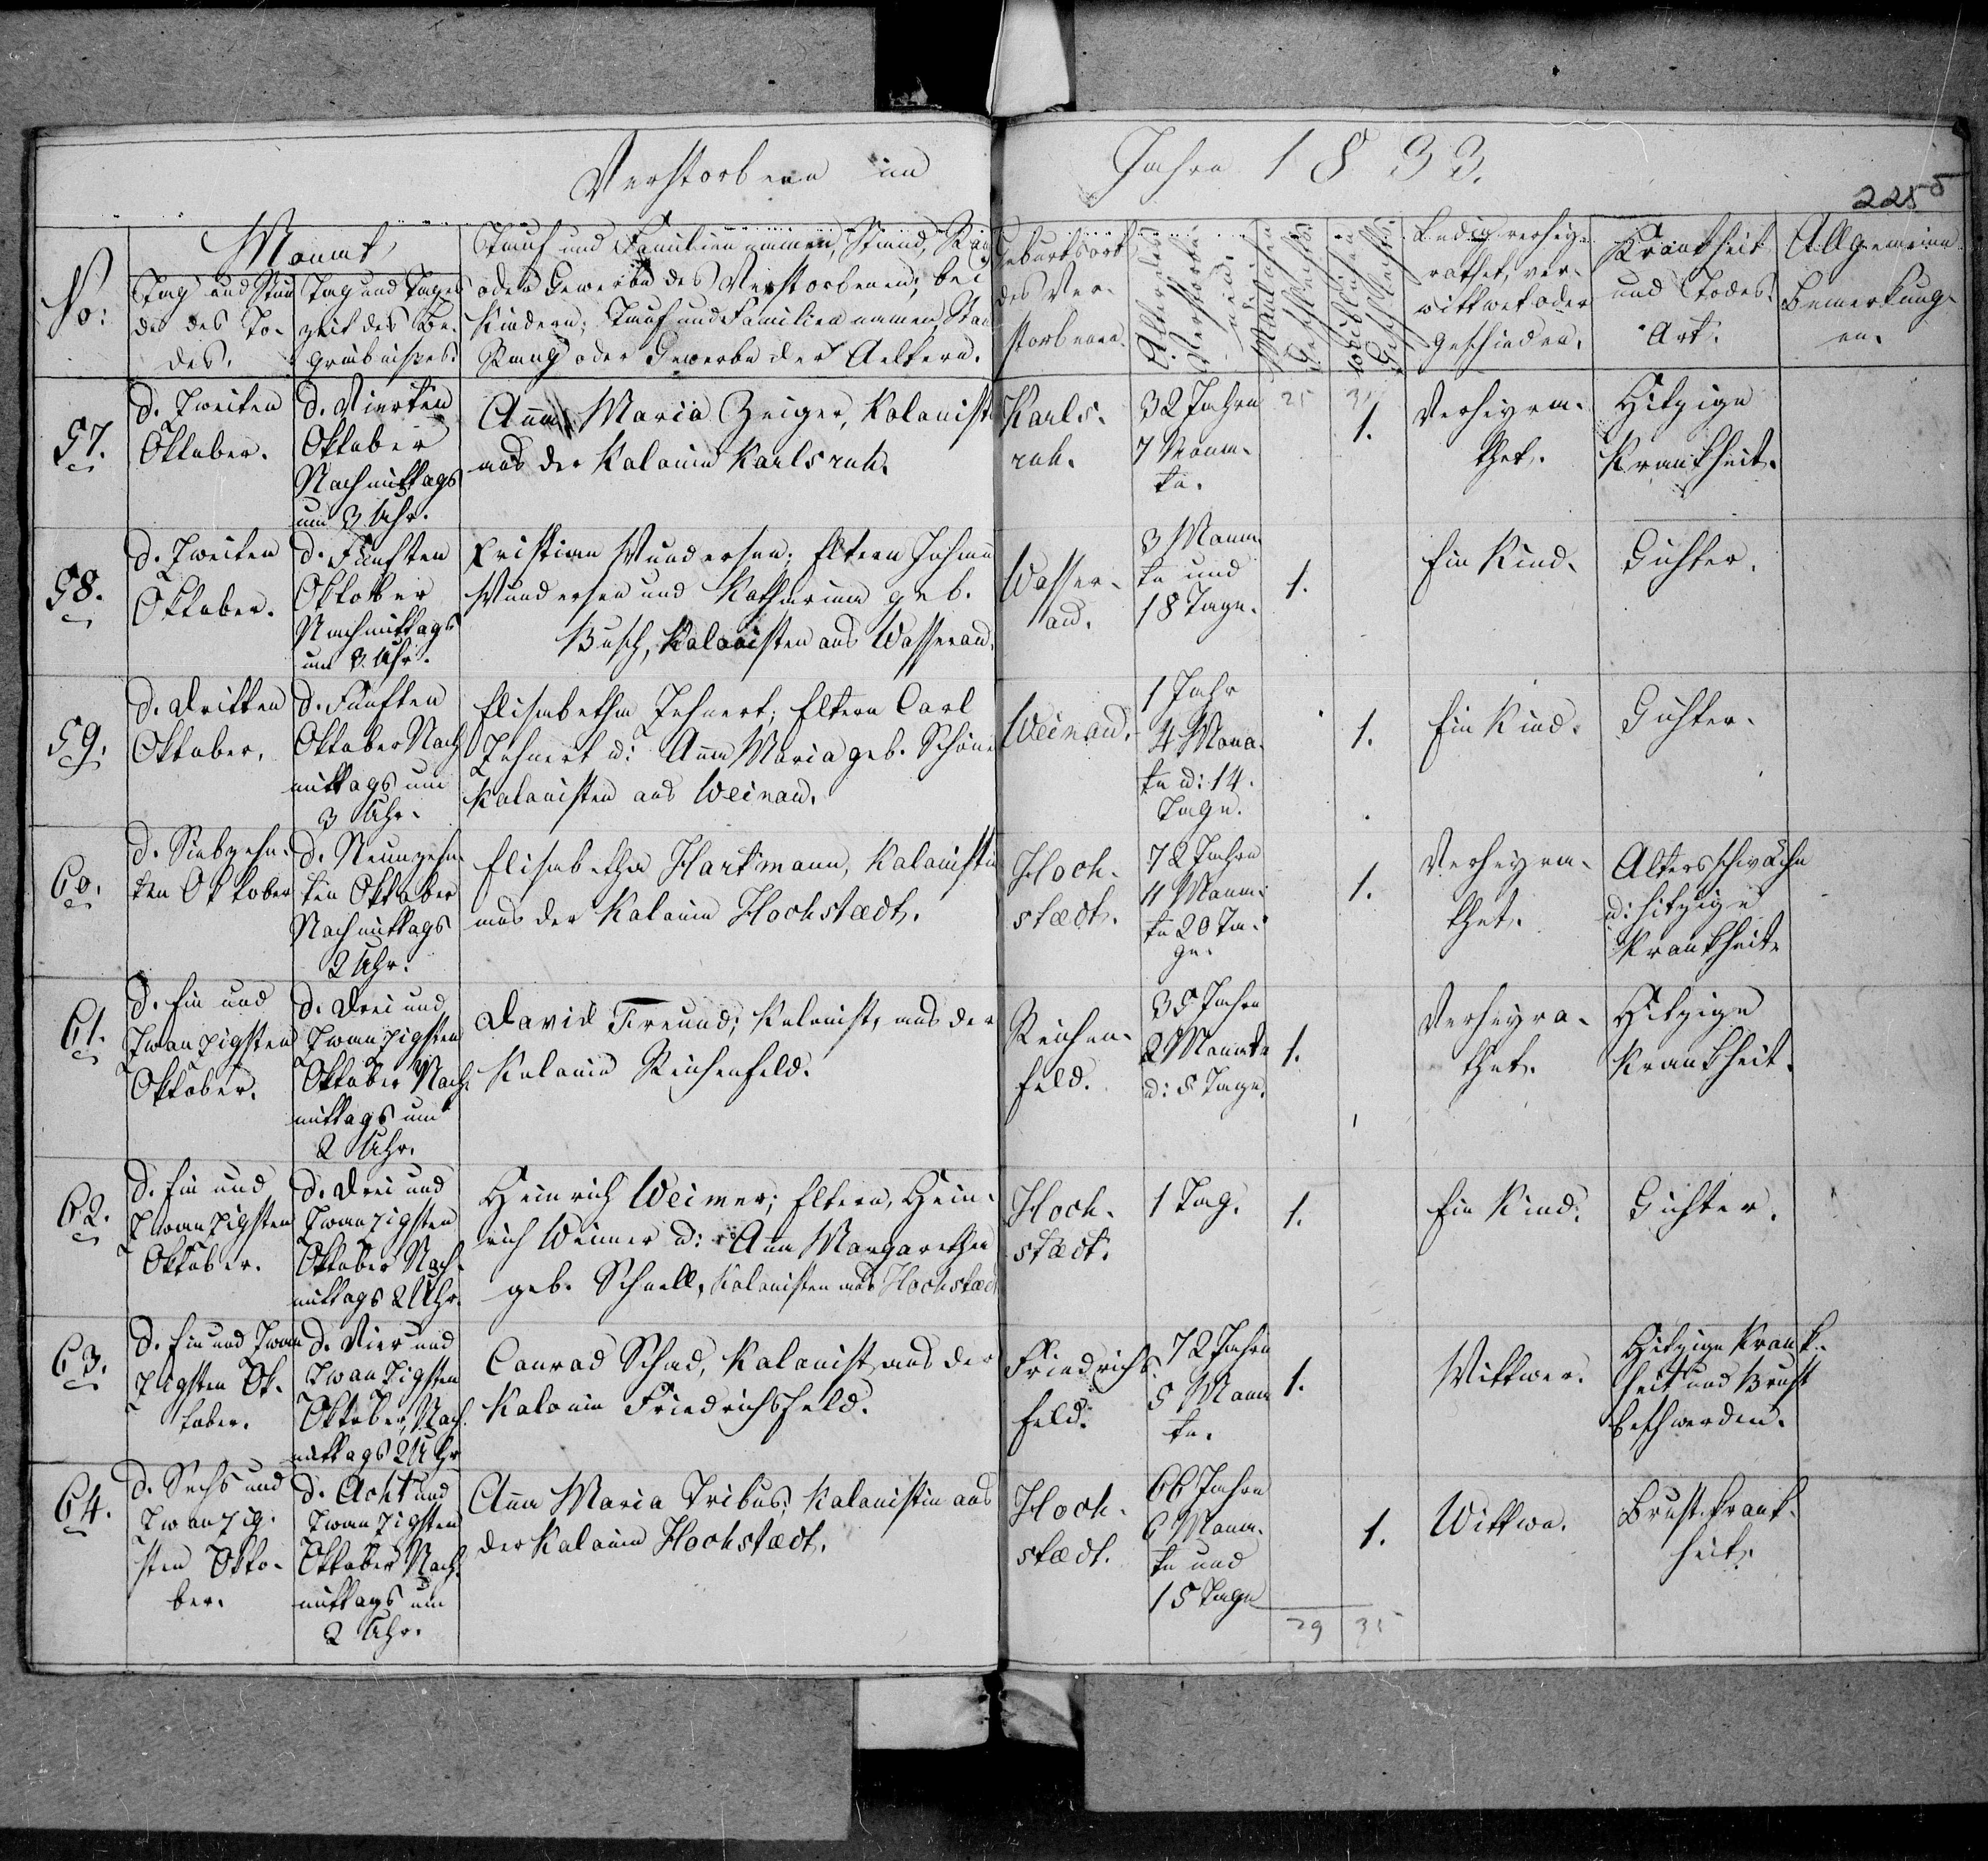 Verstorbene im Jahre 1833.
2255
No:
Monat
Tag und Stun
de des To-
des.
Tag und Tages
zeit des Be-
gräbnißes.
Tauf und Familien namen, Stand, Rang
oder Gewerbe des Verstorbenen; bei
Kindern; Tauf und Familien namen, Stan
Rang oder Gewerbe der Aeltern.
Geburtsort
des Ver-
storbenen.
Alter des
Verstorbe-
nen.
Mänlichen
Geschlechts
weiblichen
Geschlechts
Ledig, verhey-
rathet, ver-
wittwet oder
geschieden.
Krankheit
und Todes-
Art.
Allgemeine
Bemerkung-
en.
57.
d. Zweiten
Oktober.
d. Vierten
Oktober
Nachmittags
um 3 Uhr.
Anna Maria Zeiger, Kolonisti
aus der Kolonie Karlsruh.
Karls-
ruh.
32 Jahre
7 Mona-
te.
25
31
1.
Verheyra-
thet.
Hitzige
Krankheit.
58.
d. Zweiten
Oktober.
d. Fünften
Oktober
Nachmittags
um 3. Uhr.
Kristian Wundersee; Eltern Johann
Wundersee und Katharina geb.
Busch, Kolonisten aus Wasserau.
Wasser-
au.
3 Mona
te und
18 Tage.
1.
Ein Kind.
Gichter.
59.
d. Dritten
Oktober.
d. Fünften
Oktober Nach
mittags um
3 Uhr.
Elisabetha Zehnert; Eltern Carl
Zehnert u: Anna Maria geb. Schöne
Kolonisten aus Weinau.
Weinau.
1 Jahr
4 Mona-
te u: 14.
Tage.
1.
Ein Kind.
Gichter.
60.
d. Siebzehn-
ten Oktober
d. Neunzehn-
ten Oktober
Nachmittags
2 Uhr.
Elisabetha Hartmann, Kolonistin
aus der Kolonie Hochstædt.
Hoch-
stædt.
72 Jahre
4 Mona-
te 20 Ta-
ge.
1.
Verheyra-
thet.
Altersschwäche
u: hitzige
Krankheit.
61.
d. Ein und
Zwanzigsten
Oktober.
d. Drei und
Zwanzigsten
Oktober Nach-
mittags um
2 Uhr.
David Freund; Kolonist, aus der
Kolonie Reichenfeld.
Reichen-
feld.
35 Jahre
2 Monate
u: 5 Tage.
1.
Verheyra-
thet.
Hitzige
Krankheit.
62.
d. Ein und
Zwanzigsten
Oktober.
d. Drei und
Zwanzigsten
Oktober Nach-
mittags 2 Uhr.
Heinrich Weimer; Eltern, Hein-
rich Weimer u: Anna Margaretha
geb. Schnell, Kolonisten aus Hochstæd
Hoch-
stædt.
1 Tag.
1.
Ein Kind.
Gichter.
63.
d. Ein und Zwan
zigsten Ok-
tober.
d. Vier und
Zwanzigsten
Oktober, Nach-
mittags 2 Uhr
Conrad Schad, Kolonist aus der
Kolonie Friedrichsfeld.
Friedrichs-
feld.
72 Jahre
5 Mona
te.
1.
Wittwer.
Hitzige Krank-
heit und Brust
beschwerden.
64.
d. Sechs und
Zwanzig-
sten Okto-
ber.
d. Acht und
Zwanzigsten
Oktober Nach-
mittags um
2 Uhr.
Anna Maria Tribus; Kolonistin aus
der Kolonie Hochstædt.
Hoch-
stædt.
66 Jahre
6 Mona-
te und
15 Tage
1.
Wittwe.
Brust-krank-
heit.
29
35